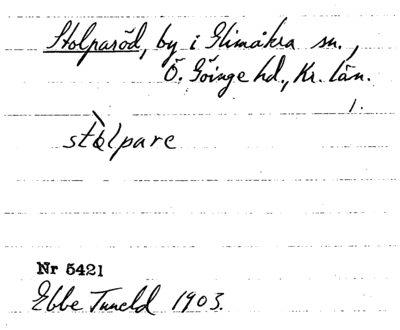 Stolparöd, by i Glimåkra sn.,
Ö. Göinge hd., Kr. län.
1.
stòlpare
Nr 5421
Ebbe Tuneld 1903.